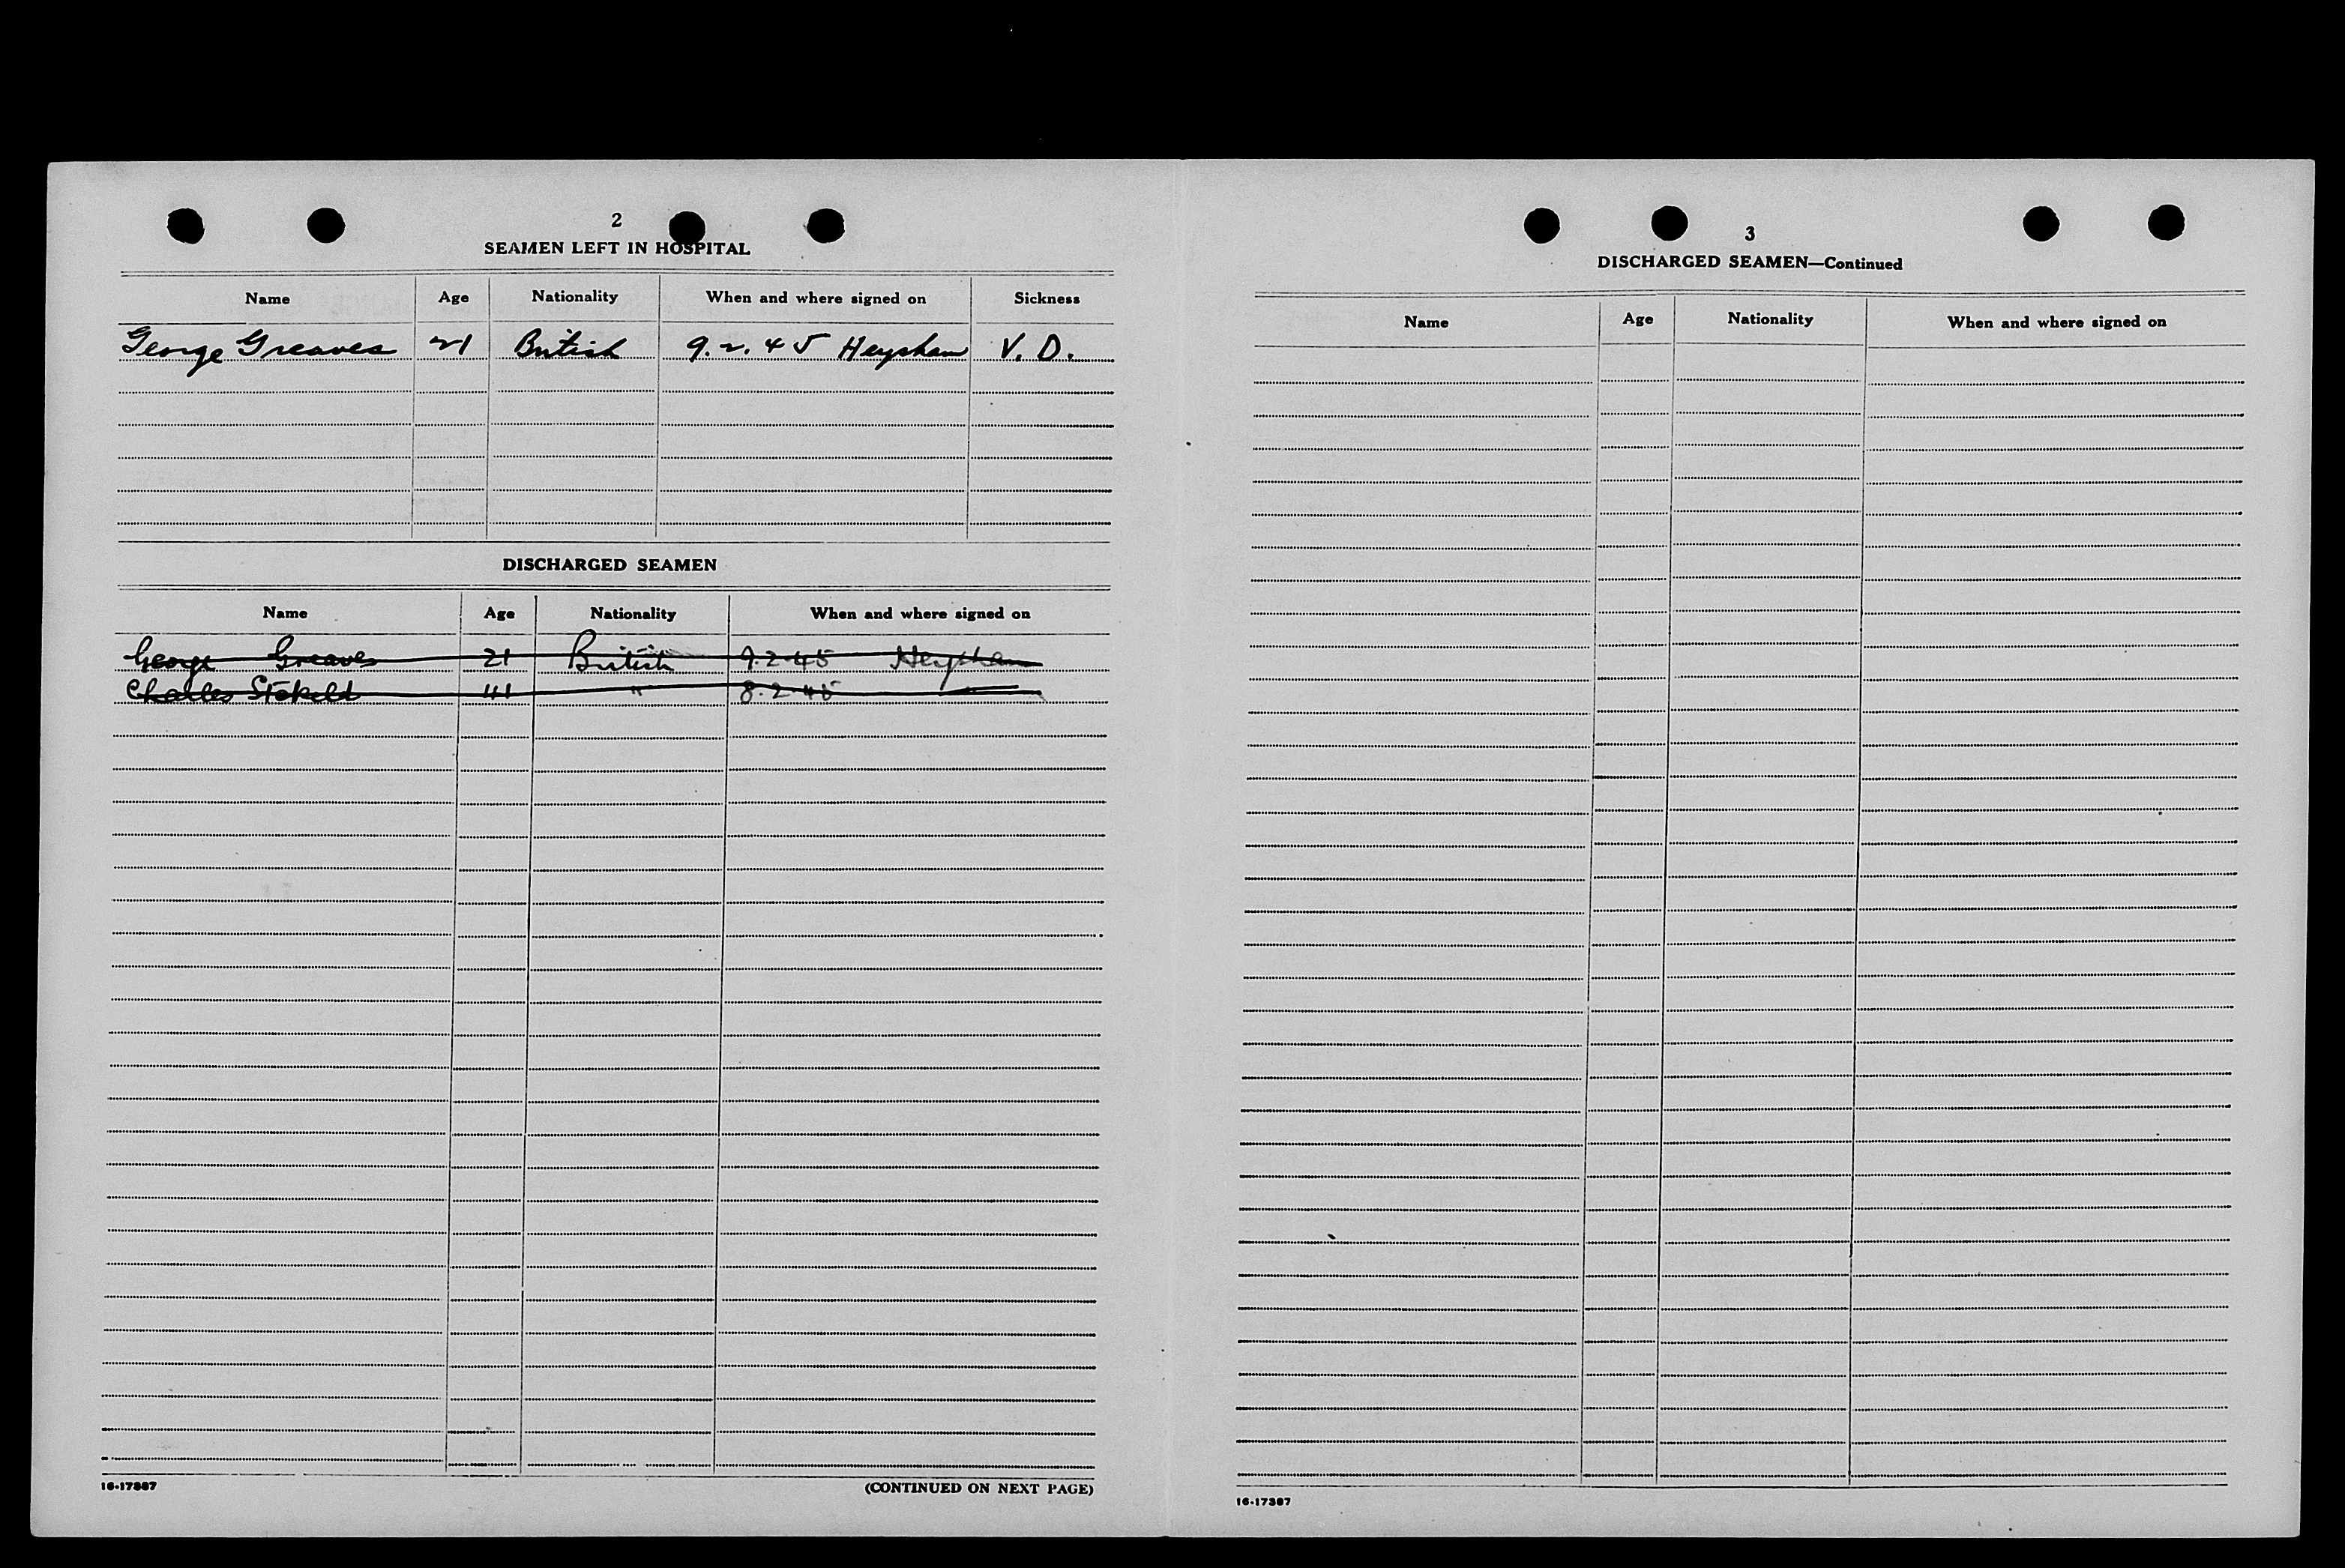 2
SEAMEN LEFT IN HOSPITAL
Name Age Nationality When and where signed on Sickness
George Greaves 21 British 9.2.45 Heysham V.D.
DISCHARGED SEAMEN
Name Age Nationality When and where signed on
George Greaves 21 British 9.2.45 Heysham
Charles 41 " 8.2.45
16-17387 (CONTINUED ON NEXT PAGE)
3
DISCHARGED SEAMEN—Continued
Name Age Nationality When and where signed on
16-17387